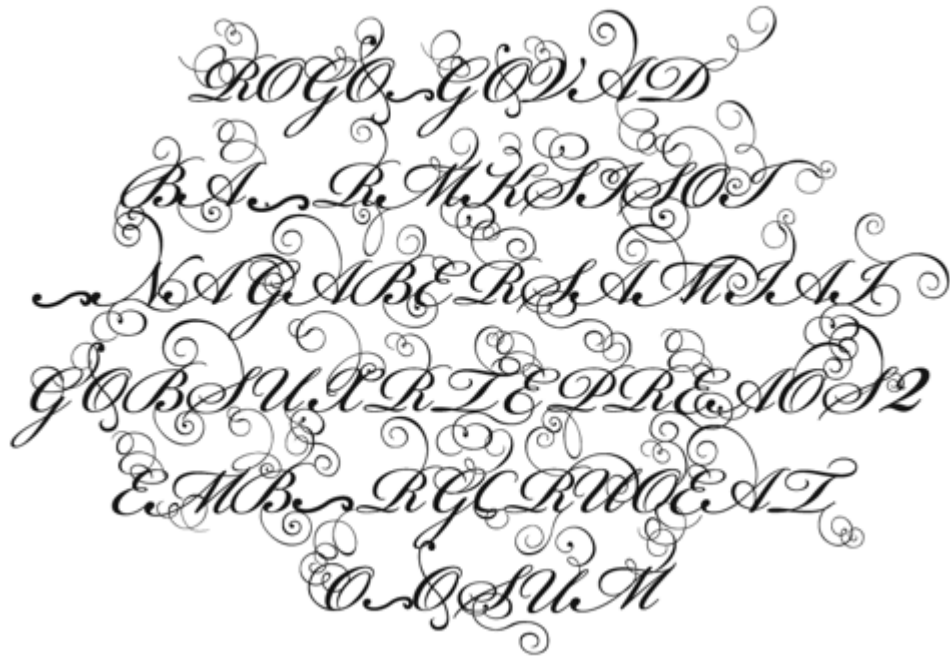 ROGO~GOVAD
BA~RMKSISOT
~NAGABERSAMIAI
GOBSUXRTEPREAOS2
EMB~RGCRUOEAT
O~OSUM